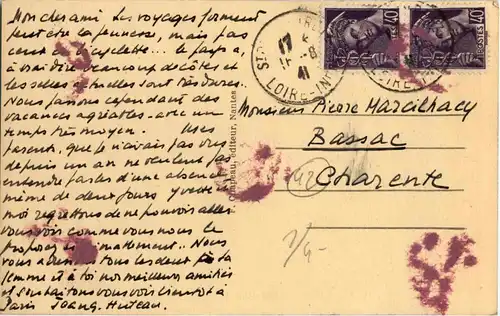 Mon cher ami. Les voyages forment
peut être la jeunesse, mais pas
ceux en bicyclette... le pays a,
à vrai dire beaucoup de côtes et
les selles actuelles sont très dures.
Nous faisons cependant des
vacances agréables. avec un
temps très moyen. Mes
parents, que je n'avais pas vus
depuis un an ne veulent pas
entendre parler d'une absence
même de deux jours. Yvette et
moi regrettons de ne pouvoir aller
vous voir comme vous nous le
proposez si aimablement. Nous
vous adressons tous les deux, à ta
femme et à toi nos meilleures amitiés
et souhaitons vous voir bientôt à
Paris
Chapeau, éditeur, Nantes
17
41
LOIRE-INF
POSTES 40
40
Monsieur Pierre Marcilhacy
Bassac
Charente